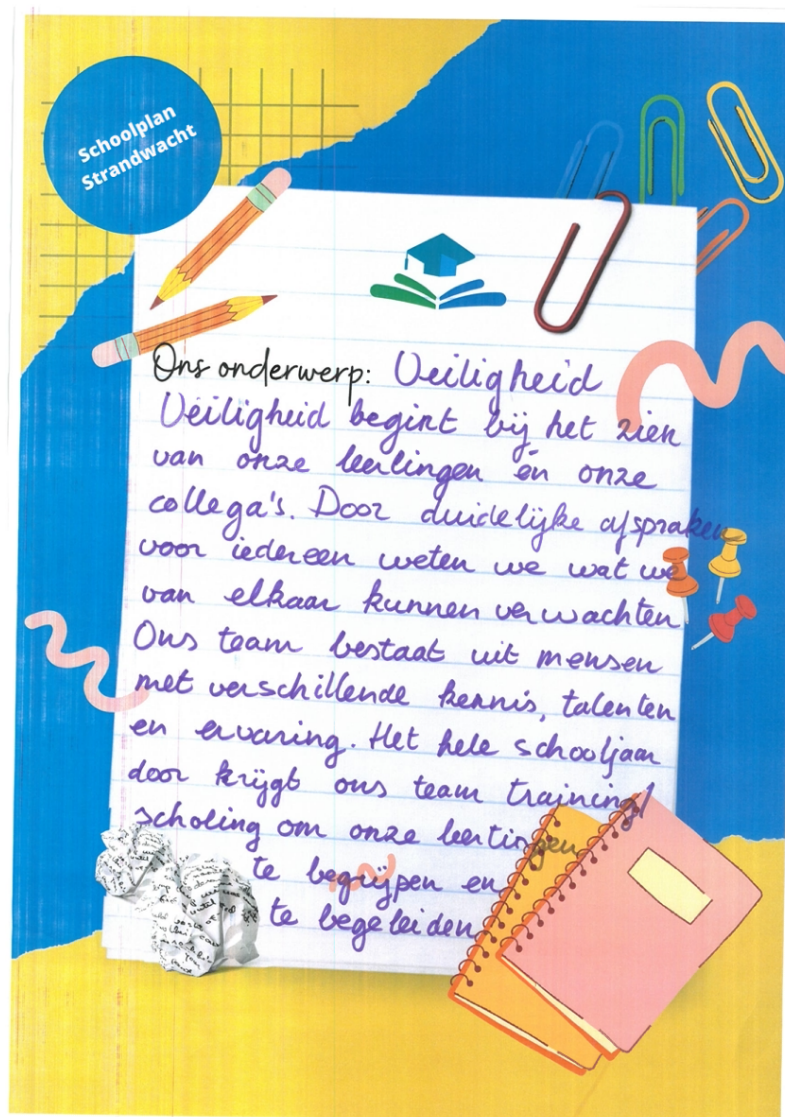 Schoolplan
Strandwacht
Ons onderwerp: Veiligheid
Veiligheid begint bij het zien
van onze leerlingen én onze
collega's. Door duidelijke afspraken
voor iedereen weten we wat we
van elkaar kunnen verwachten
Ons team bestaat uit mensen
met verschillende kennis, talenten
en ervaring. Het hele schooljaar
door krijgt ons team training/
scholing om onze leerlingen
te begrijpen en
te begeleiden